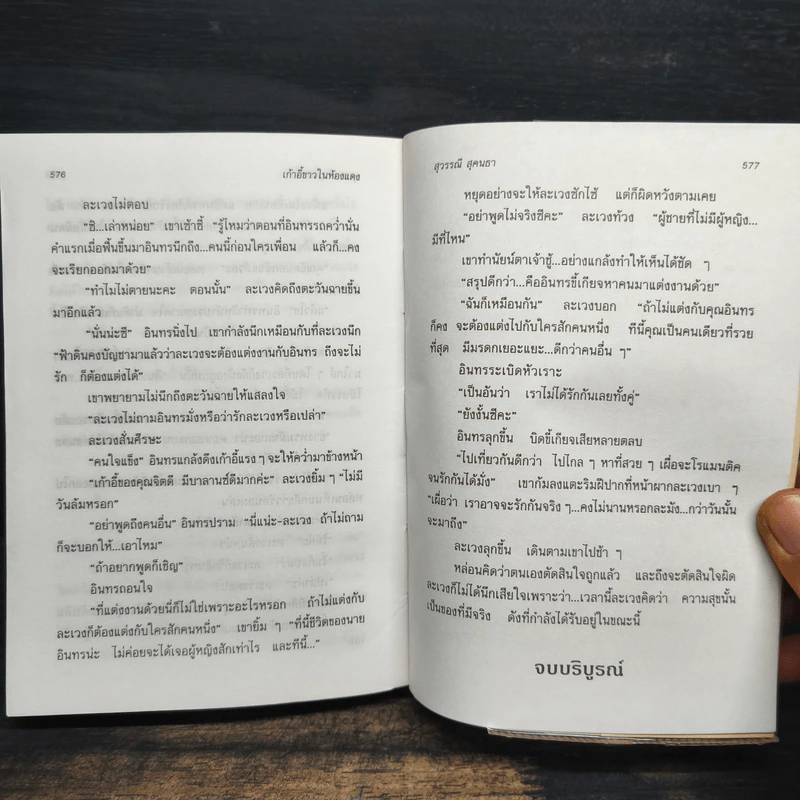 576
เก้าอี้ขาวในห้องแดง
ละเวงไม่ตอบ
“ซิ...เล่าหน่อย” เขาเซ้าซี้ “รู้ไหมว่าตอนที่อินทรรถคว่ำนั่น
คำแรกเมื่อฟื้นขึ้นมาอินทรนึกถึง...คนนี้ก่อนใครเพื่อน แล้วก็...คง
จะเรียกออกมาด้วย”
“ทำไมไม่ตายนะคะ ตอนนั้น” ละเวงคิดถึงตะวันฉายขึ้น
มาอีกแล้ว
“นั่นน่ะซี” อินทรนิ่งไป เขากำลังนึกเหมือนกับที่ละเวงนึก
“ฟ้าดินคงบัญชามาแล้วว่าละเวงจะต้องแต่งงานกับอินทร ถึงจะไม่
รัก ก็ต้องแต่งได้”
เขาพยายามไม่นึกถึงตะวันฉายให้แสลงใจ
“ละเวงไม่ถามอินทรมั่งหรือว่ารักละเวงหรือเปล่า”
ละเวงสั่นศีรษะ
“คนใจแข็ง” อินทรแกล้งดึงเก้าอี้แรง ๆ จะให้คว่ำมาข้างหน้า
“เก้าอี้ของคุณจิตดี มีบาลานซ์ดีมากค่ะ” ละเวงยิ้ม ๆ “ไม่มี
วันล้มหรอก”
“อย่าพูดถึงคนอื่น” อินทรปราม “นี่แน่ะ-ละเวง ถ้าไม่ถาม
ก็จะบอกให้...เอาไหม”
“ถ้าอยากพูดก็เชิญ”
อินทรถอนใจ
“ที่แต่งงานด้วยนี่ก็ไม่ใช่เพราะอะไรหรอก ถ้าไม่แต่งกับ
ละเวงก็ต้องแต่งกับใครสักคนหนึ่ง” เขายิ้ม ๆ “ที่นี้ชีวิตของนาย
อินทรน่ะ ไม่ค่อยจะได้เจอผู้หญิงสักเท่าไร และทีนี้...”
สุวรรณี สุคนธา
577
หยุดอย่างจะให้ละเวงซักไซ้ แต่ก็ผิดหวังตามเคย
“อย่าพูดไม่จริงซีคะ” ละเวงท้วง “ผู้ชายที่ไม่มีผู้หญิง...
มีที่ไหน”
เขาทำนัยน์ตาเจ้าชู้...อย่างแกล้งทำให้เห็นได้ชัด ๆ
“สรุปดีกว่า...คืออินทรขี้เกียจหาคนมาแต่งงานด้วย”
“ฉันก็เหมือนกัน” ละเวงบอก “ถ้าไม่แต่งกับคุณอินทร
ก็คง จะต้องแต่งไปกับใครสักคนหนึ่ง ทีนี้คุณเป็นคนเดียวที่รวย
ที่สุด มีมรดกเยอะแยะ...ดีกว่าคนอื่น ๆ”
อินทรระเบิดหัวเราะ
“เป็นอันว่า เราไม่ได้รักกันเลยทั้งคู่”
“ยังงั้นซีคะ”
อินทรลุกขึ้น บิดขี้เกียจเสียหลายตลบ
“ไปเที่ยวกันดีกว่า ไปไกล ๆ หาที่สวย ๆ เผื่อจะโรแมนติค
จนรักกันได้มั่ง” เขาก้มลงแตะริมฝีปากที่หน้าผากละเวงเบา ๆ
“เผื่อว่า เราอาจจะรักกันจริง ๆ...คงไม่นานหรอกละมัง...กว่าวันนั้น
จะมาถึง”
ละเวงลุกขึ้น เดินตามเขาไปช้า ๆ
หล่อนคิดว่าตนเองตัดสินใจถูกแล้ว และถึงจะตัดสินใจผิด
ละเวงก็ไม่ได้นึกเสียใจเพราะว่า...เวลานี้ละเวงคิดว่า ความสุขนั้น
เป็นของที่มีจริง ดังที่กำลังได้รับอยู่ในขณะนี้
จบบริบูรณ์